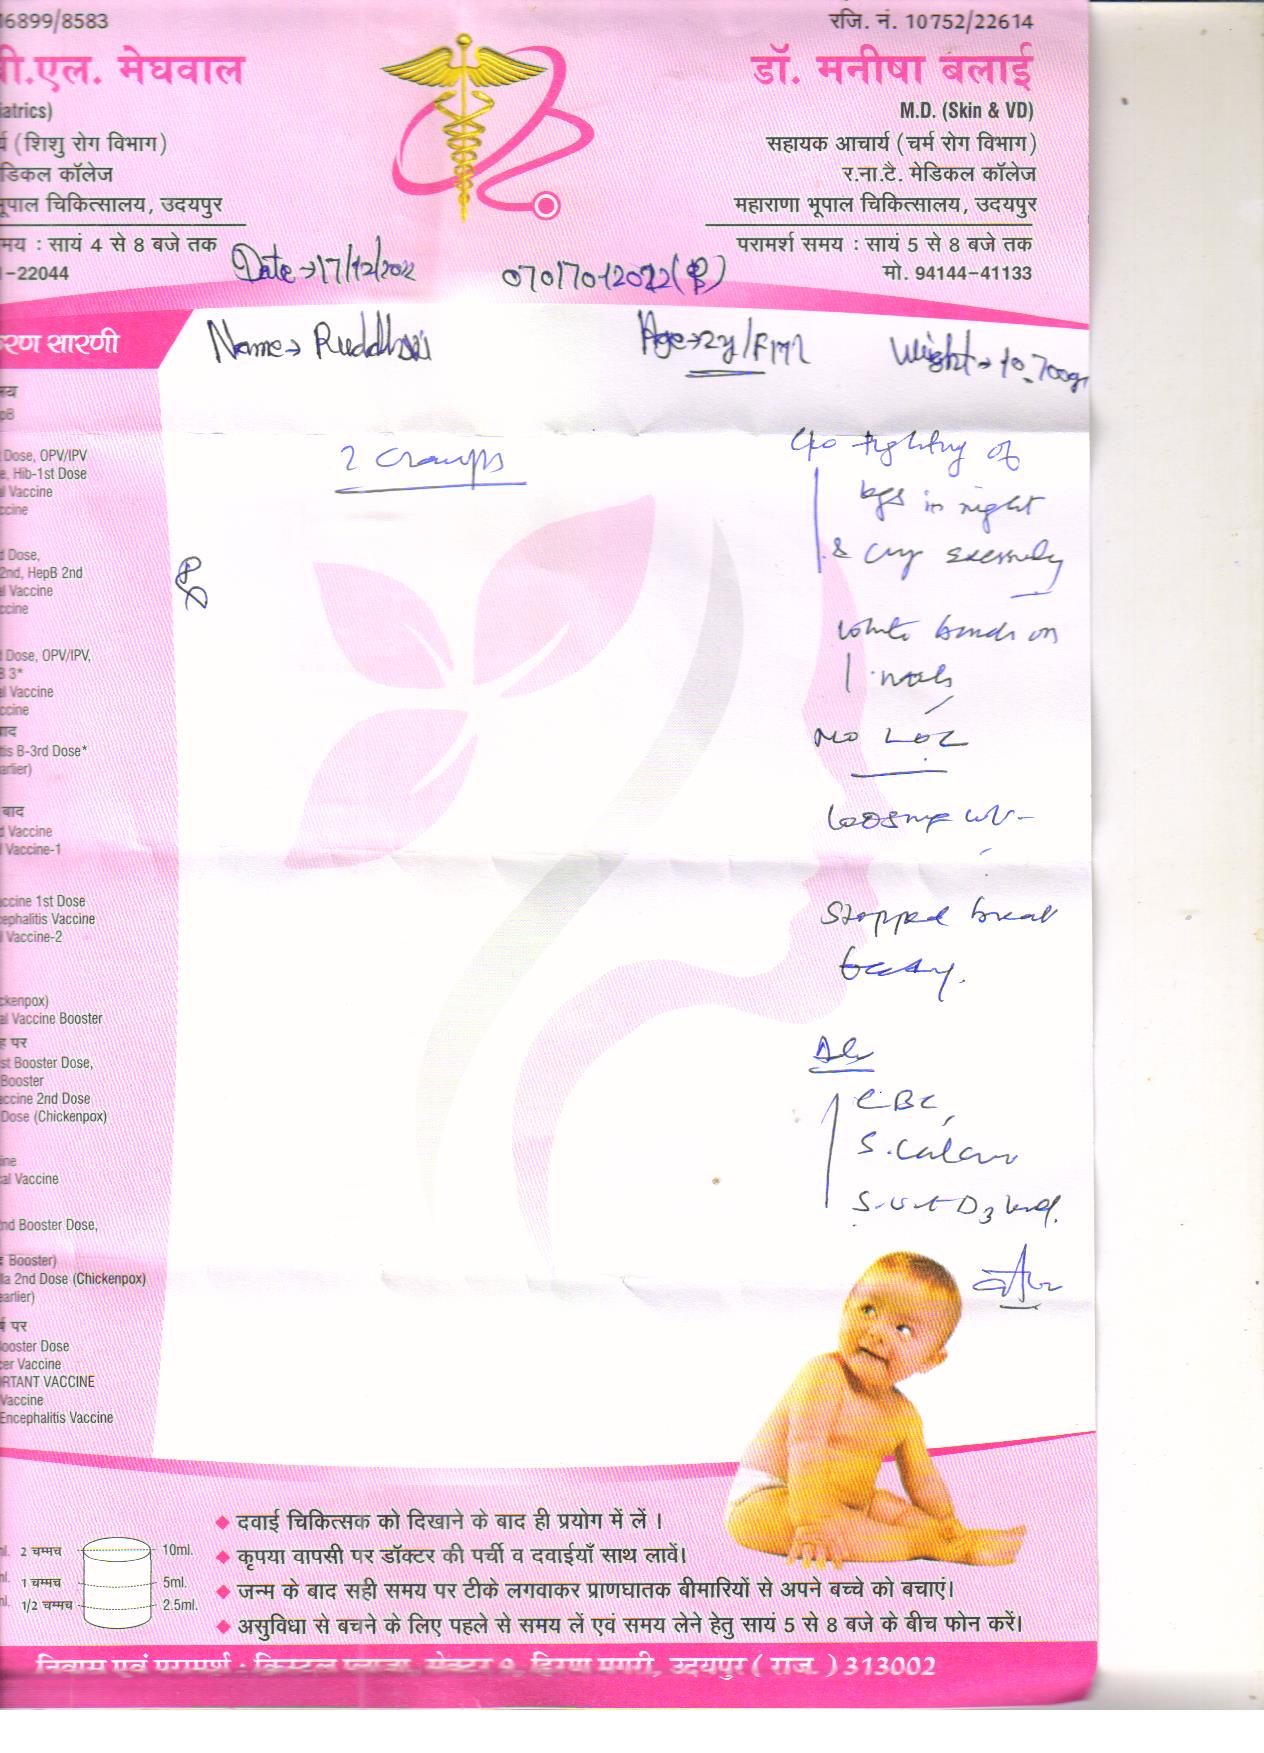 16899/8583
रजि. नं. 10752/22614
वी.एल. मेघवाल
डॉ. मनीषा बलाई
iatrics)
M.D. (Skin & VD)
र्य (शिशु रोग विभाग)
सहायक आचार्य (चर्म रोग विभाग)
डिकल कॉलेज
र.ना.टै. मेडिकल कॉलेज
भूपाल चिकित्सालय, उदयपुर
महाराणा भूपाल चिकित्सालय, उदयपुर
मय : सायं 4 से 8 बजे तक
परामर्श समय : सायं 5 से 8 बजे तक
-22044
Date → 17/12/2022
मो. 94144-41133
करण सारणी
Name →
Age → 2y/
Weight → 10.700
pB
Dose, OPV/IPV
e, Hib-1st Dose
al Vaccine
ccine
? Cramps
C/o tightning of
legs in night
& cry
d Dose,
2nd, HepB 2nd
al Vaccine
ccine
white bands on
nails
d Dose, OPV/IPV,
B 3*
al Vaccine
ccine
बाद
tis B-3rd Dose*
arlier)
No LOC
बाद
d Vaccine
l Vaccine-1
ccine 1st Dose
cephalitis Vaccine
l Vaccine-2
Stopped
ckenpox)
al Vaccine Booster
ह पर
st Booster Dose,
Booster
accine 2nd Dose
Dose (Chickenpox)
CBC,
S.
S. Vit D3
ine
cal Vaccine
2nd Booster Dose,
Booster)
lla 2nd Dose (Chickenpox)
earlier)
र्ष पर
Booster Dose
cer Vaccine
ORTANT VACCINE
Vaccine
Encephalitis Vaccine
ml. 2 चम्मच 10ml.
ml. 1 चम्मच 5ml.
ml. 1/2 चम्मच 2.5ml.
◆ दवाई चिकित्सक को दिखाने के बाद ही प्रयोग में लें ।
◆ कृपया वापसी पर डॉक्टर की पर्ची व दवाईयाँ साथ लावें।
◆ जन्म के बाद सही समय पर टीके लगवाकर प्राणघातक बीमारियों से अपने बच्चे को बचाएं।
◆ असुविधा से बचने के लिए पहले से समय लें एवं समय लेने हेतु सायं 5 से 8 बजे के बीच फोन करें।
निवास एवं परामर्श : क्रिस्टल प्लाजा, सेक्टर 9, हिरण मगरी, उदयपुर ( राज. ) 313002